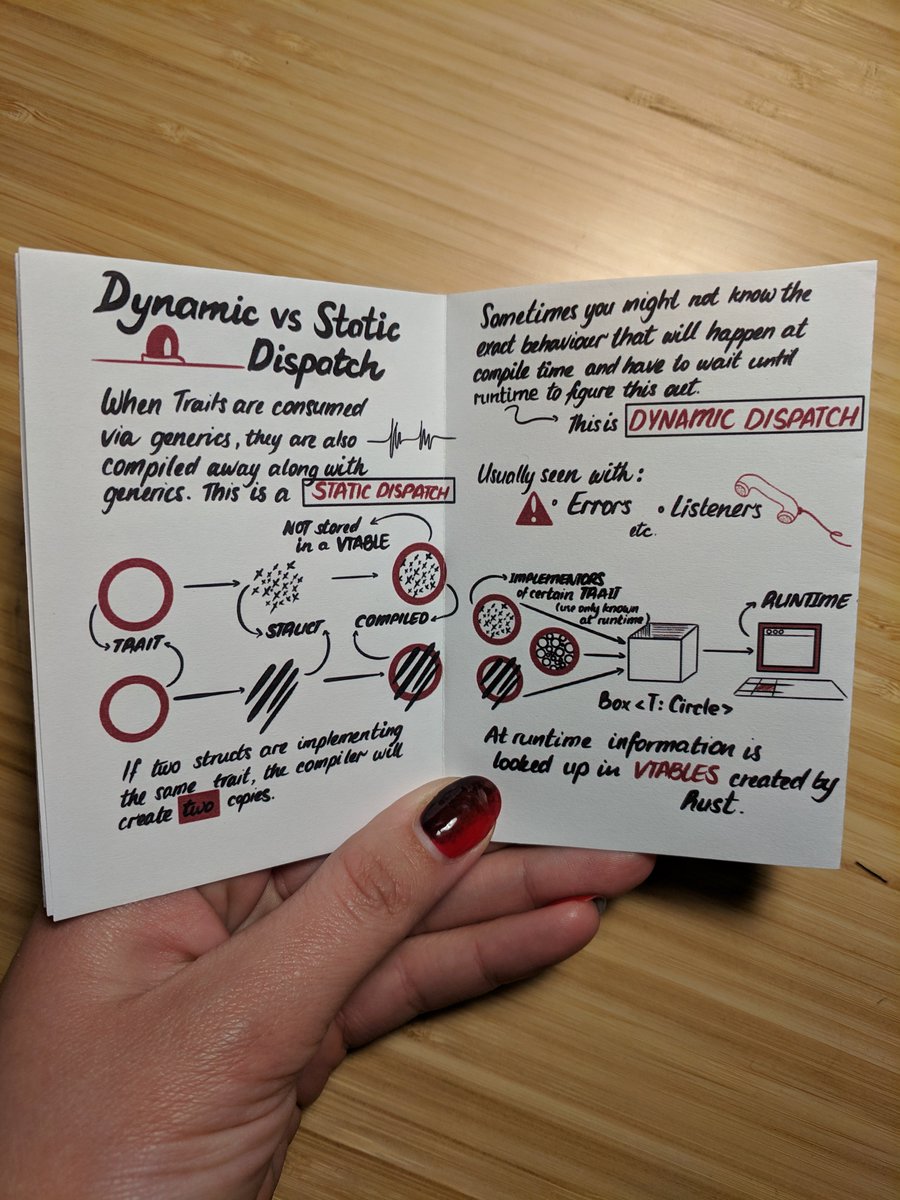 Dynamic vs Static
Dispatch
When Traits are consumed
via generics, they are also
compiled away along with
generics. This is a STATIC DISPATCH
NOT stored
in a VTABLE
TRAIT
STRUCT
COMPILED
If two structs are implementing
the same trait, the compiler will
create two copies.
Sometimes you might not know the
exact behaviour that will happen at
compile time and have to wait until
runtime to figure this out.
This is DYNAMIC DISPATCH
Usually seen with:
• Errors • Listeners
etc.
IMPLEMENTORS
of certain TRAIT
(use only known
at runtime)
RUNTIME
Box <T: Circle>
At runtime information is
looked up in VTABLES created by
Rust.